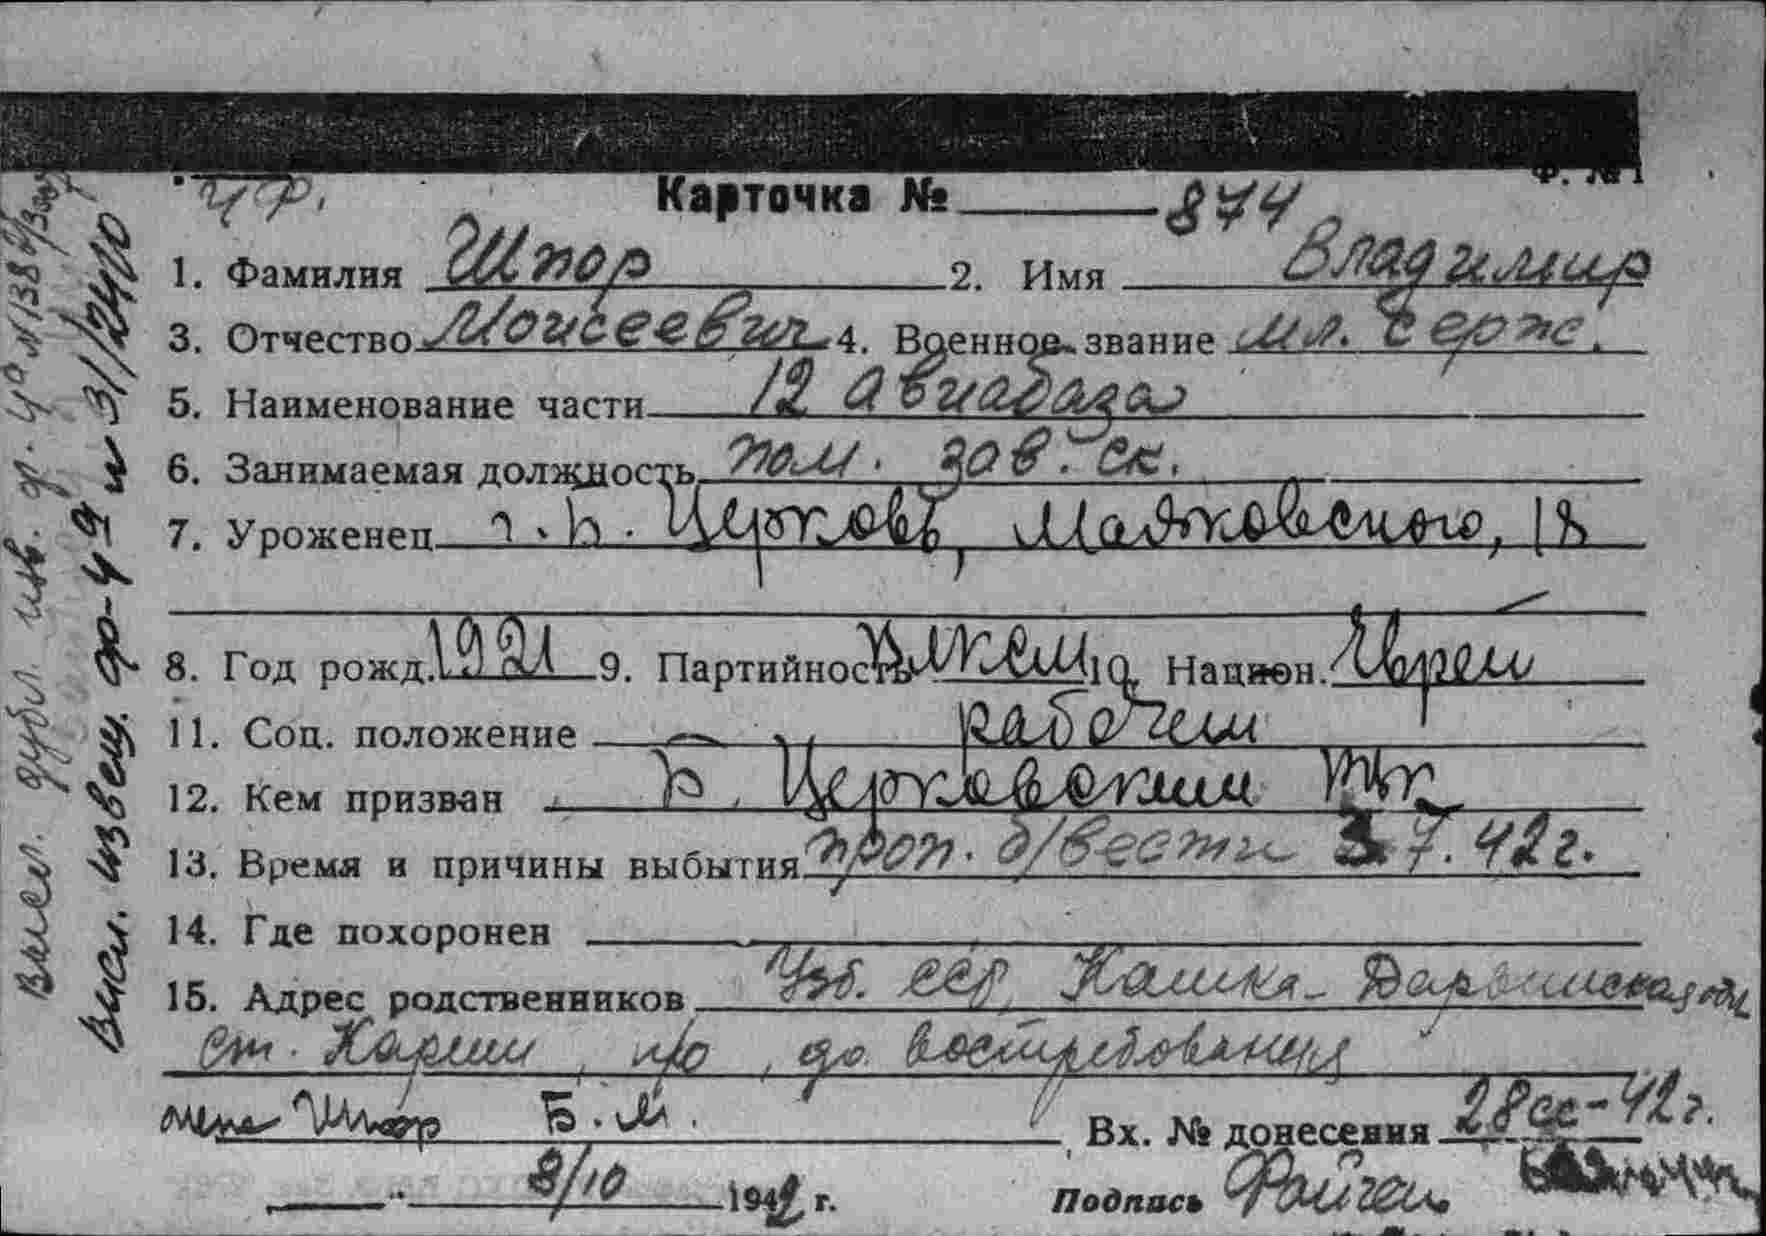 Ф. №1
ч ф.
Карточка № 874
1. Фамилия Шпор 2. Имя Владимир
3. Отчество Моисеевич 4. Военное звание мл. серж.
5. Наименование части 12 авиабаза
6. Занимаемая должность пом. зав. ск.
7. Уроженец г. Б. Церковь, Маяковского, 18
8. Год рожд. 1921 9. Партийность ВЛКСМ 10. Национ. Еврей
11. Соц. положение рабочий
12. Кем призван Б. Церковский
13. Время и причины выбытия проп. б/вести 3 7. 42 г.
14. Где похоронен
15. Адрес родственников Узб. ССР, Кашка-Дарьинская обл
ст. Карши, п/о, до востребования
жена Шпор Б. М.
Вх. № донесения 28сс-42 г.
8/10 1942 г. Подпись
Высл. дубл. изв. ф. 4
Высл. извещ. ф-4